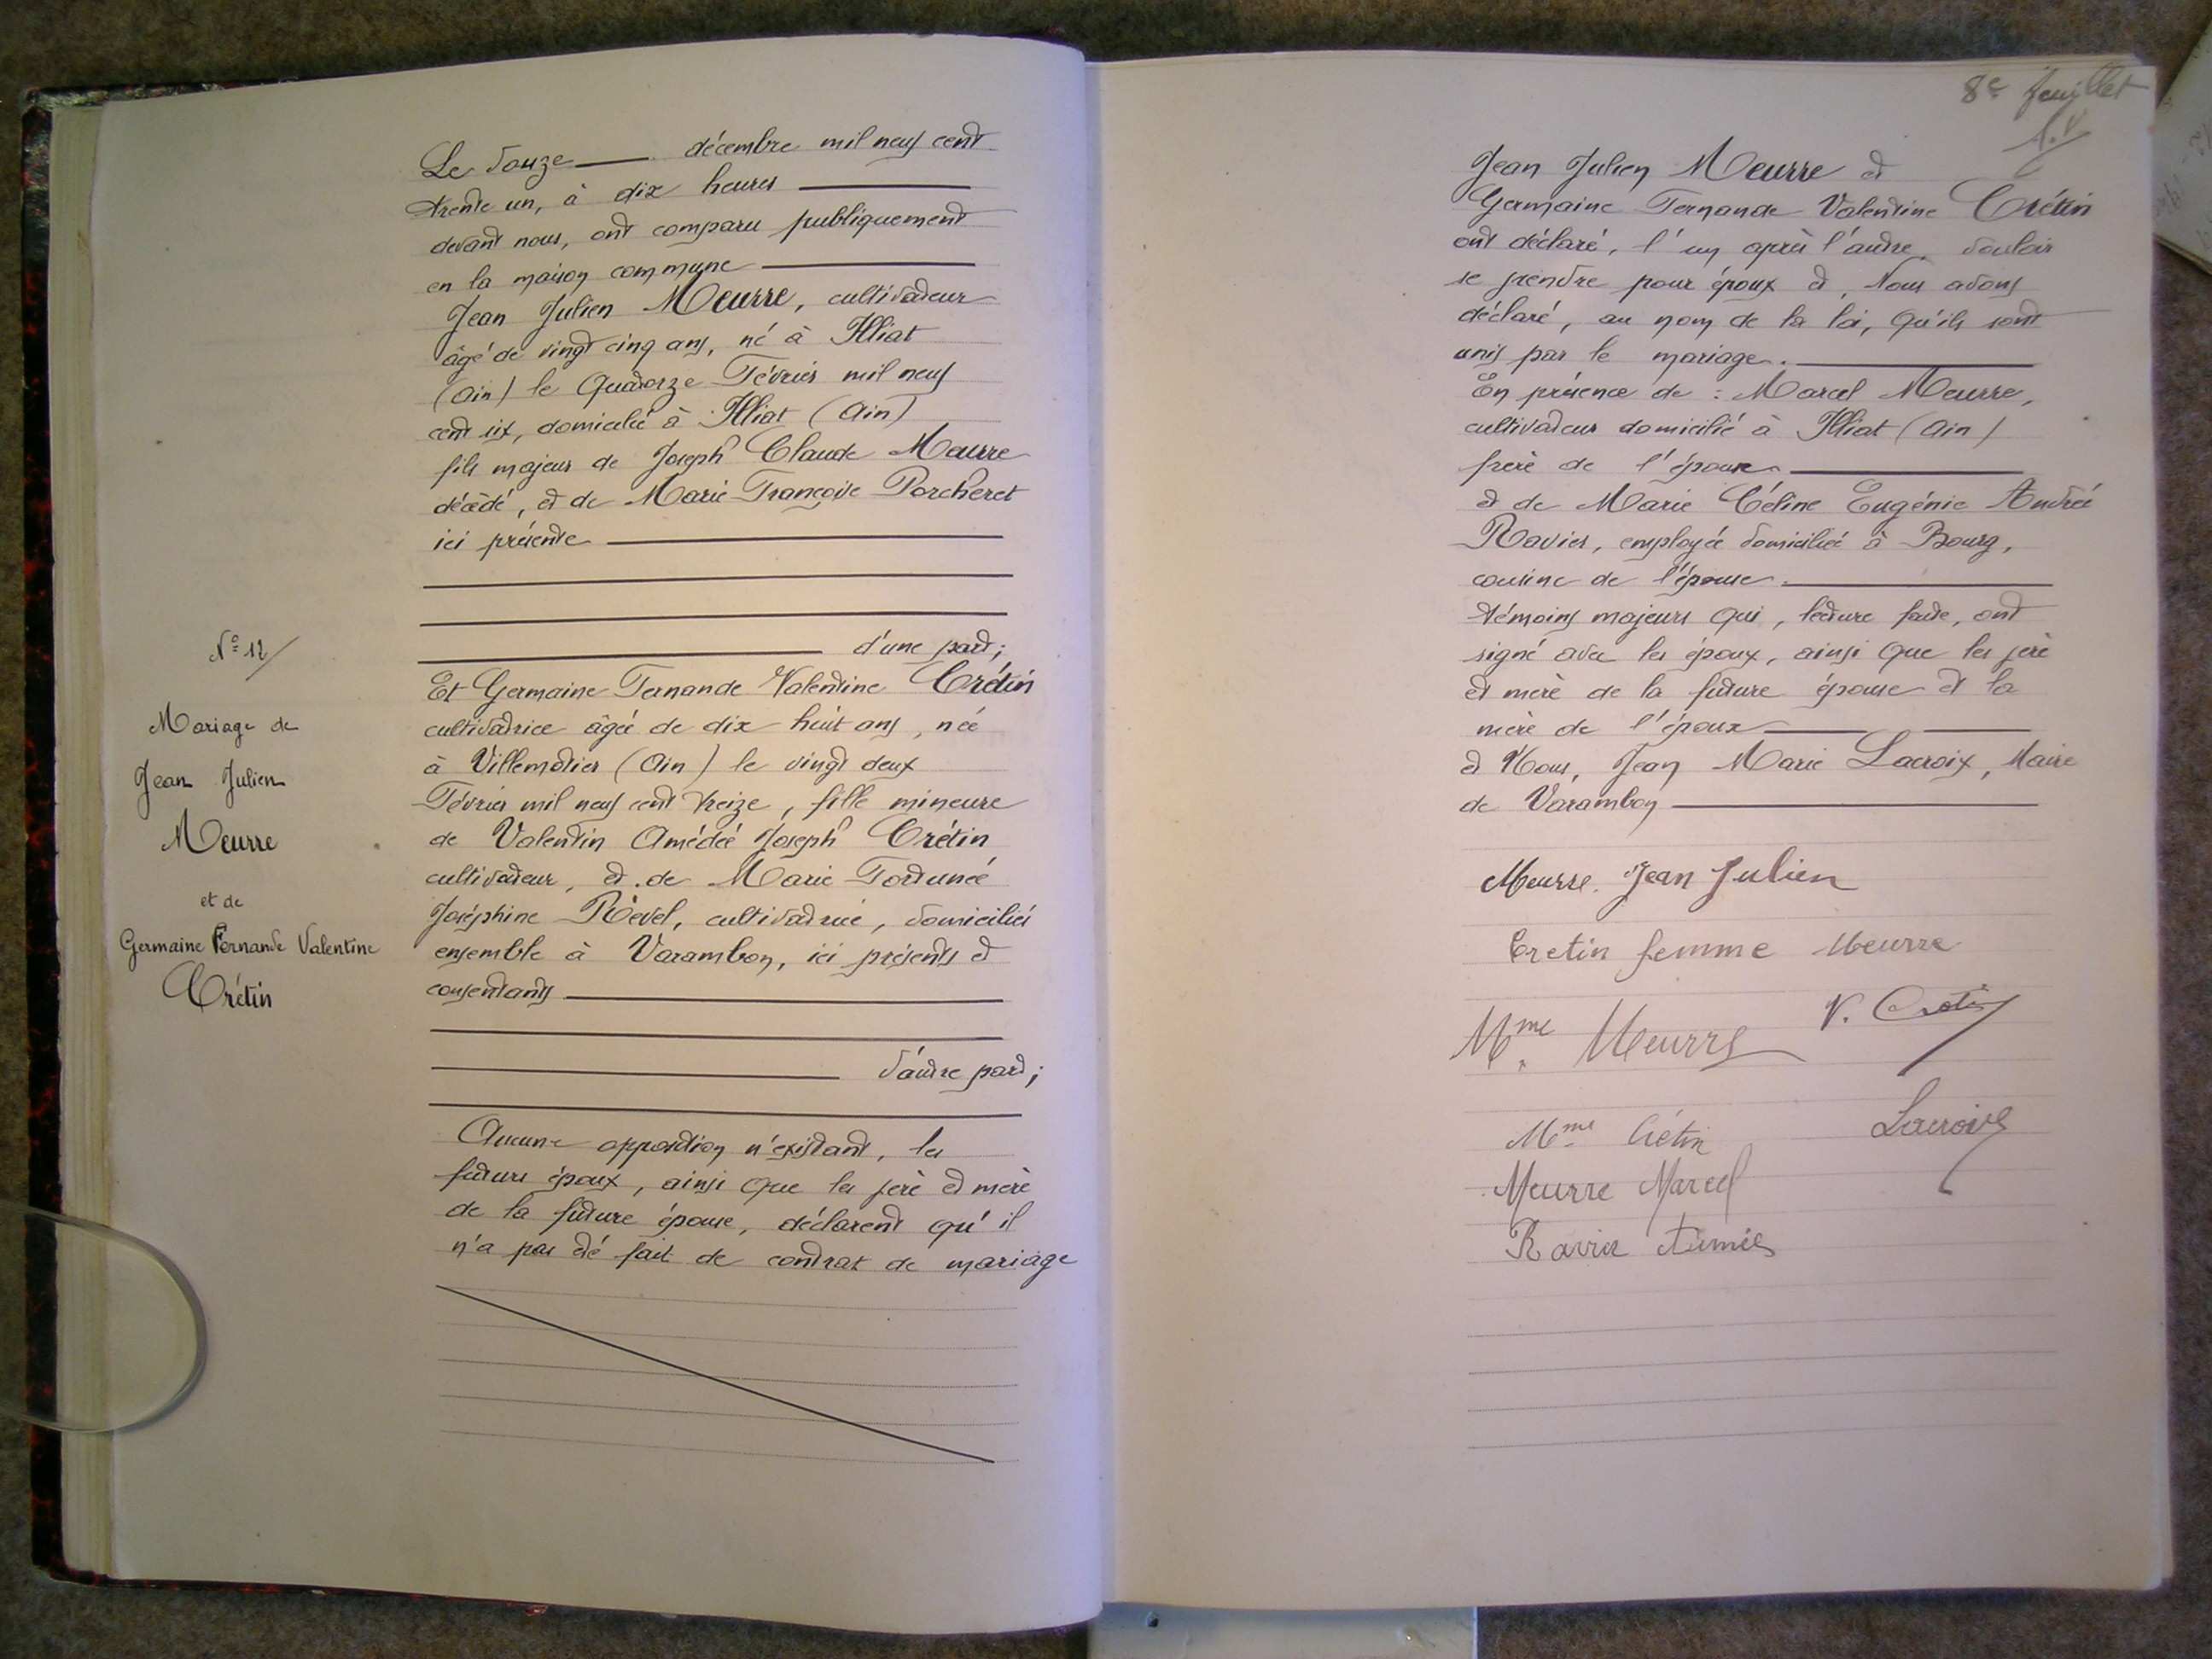 N° 12
Mariage de
Jean Julien
Meurre
et de
Germaine Fernande Valentine
Crétin
Le douze décembre mil neuf cent
trente un, à dix heures
devant nous, ont comparu publiquement
en la maison commune
Jean Julien Meurre, cultivateur
âgé de vingt cinq ans, né à Illiat
(Ain) le Quatorze Février mil neuf
cent six, domicilié à Illiat (Ain)
fils majeur de Joseph Claude Meurre
décédé, et de Marie Françoise Porcheret
ici présente
d'une part;
Et Germaine Fernande Valentine Crétin
cultivatrice âgée de dix huit ans, née
à Villemotier (Ain) le vingt deux
Février mil neuf cent treize, fille mineure
de Valentin Amédée Joseph Crétin
cultivateur, et de Marie Fortunée
Joséphine Revel, cultivatrice, domiciliés
ensemble à Varambon, ici présents et
consentants
d'autre part;
Aucune opposition n'existant, les
futurs époux, ainsi que les père et mère
de la future épouse, déclarent qu'il
n'a pas été fait de contrat de mariage
8e feuillet
Jean Julien Meurre et
Germaine Fernande Valentine Crétin
ont déclaré, l'un après l'autre, vouloir
se prendre pour époux et, Nous avons
déclaré, au nom de la loi, qu'ils sont
unis par le mariage.
En présence de : Marcel Meurre,
cultivateur domicilié à Illiat (Ain)
frère de l'époux
et de Marie Céline Eugénie Andrée
Ravier, employée domiciliée à Bourg,
cousine de l'épouse.
témoins majeurs qui, lecture faite, ont
signé avec les époux, ainsi que les père
et mère de la future épouse et la
mère de l'époux
et Nous, Jean Marie Lacroix, Maire
de Varambon
Meurre. Jean Julien
Cretin femme Meurre
Mme Meurre V. Crétin
Mme Crétin Lacroix
Meurre Marcel
Ravier